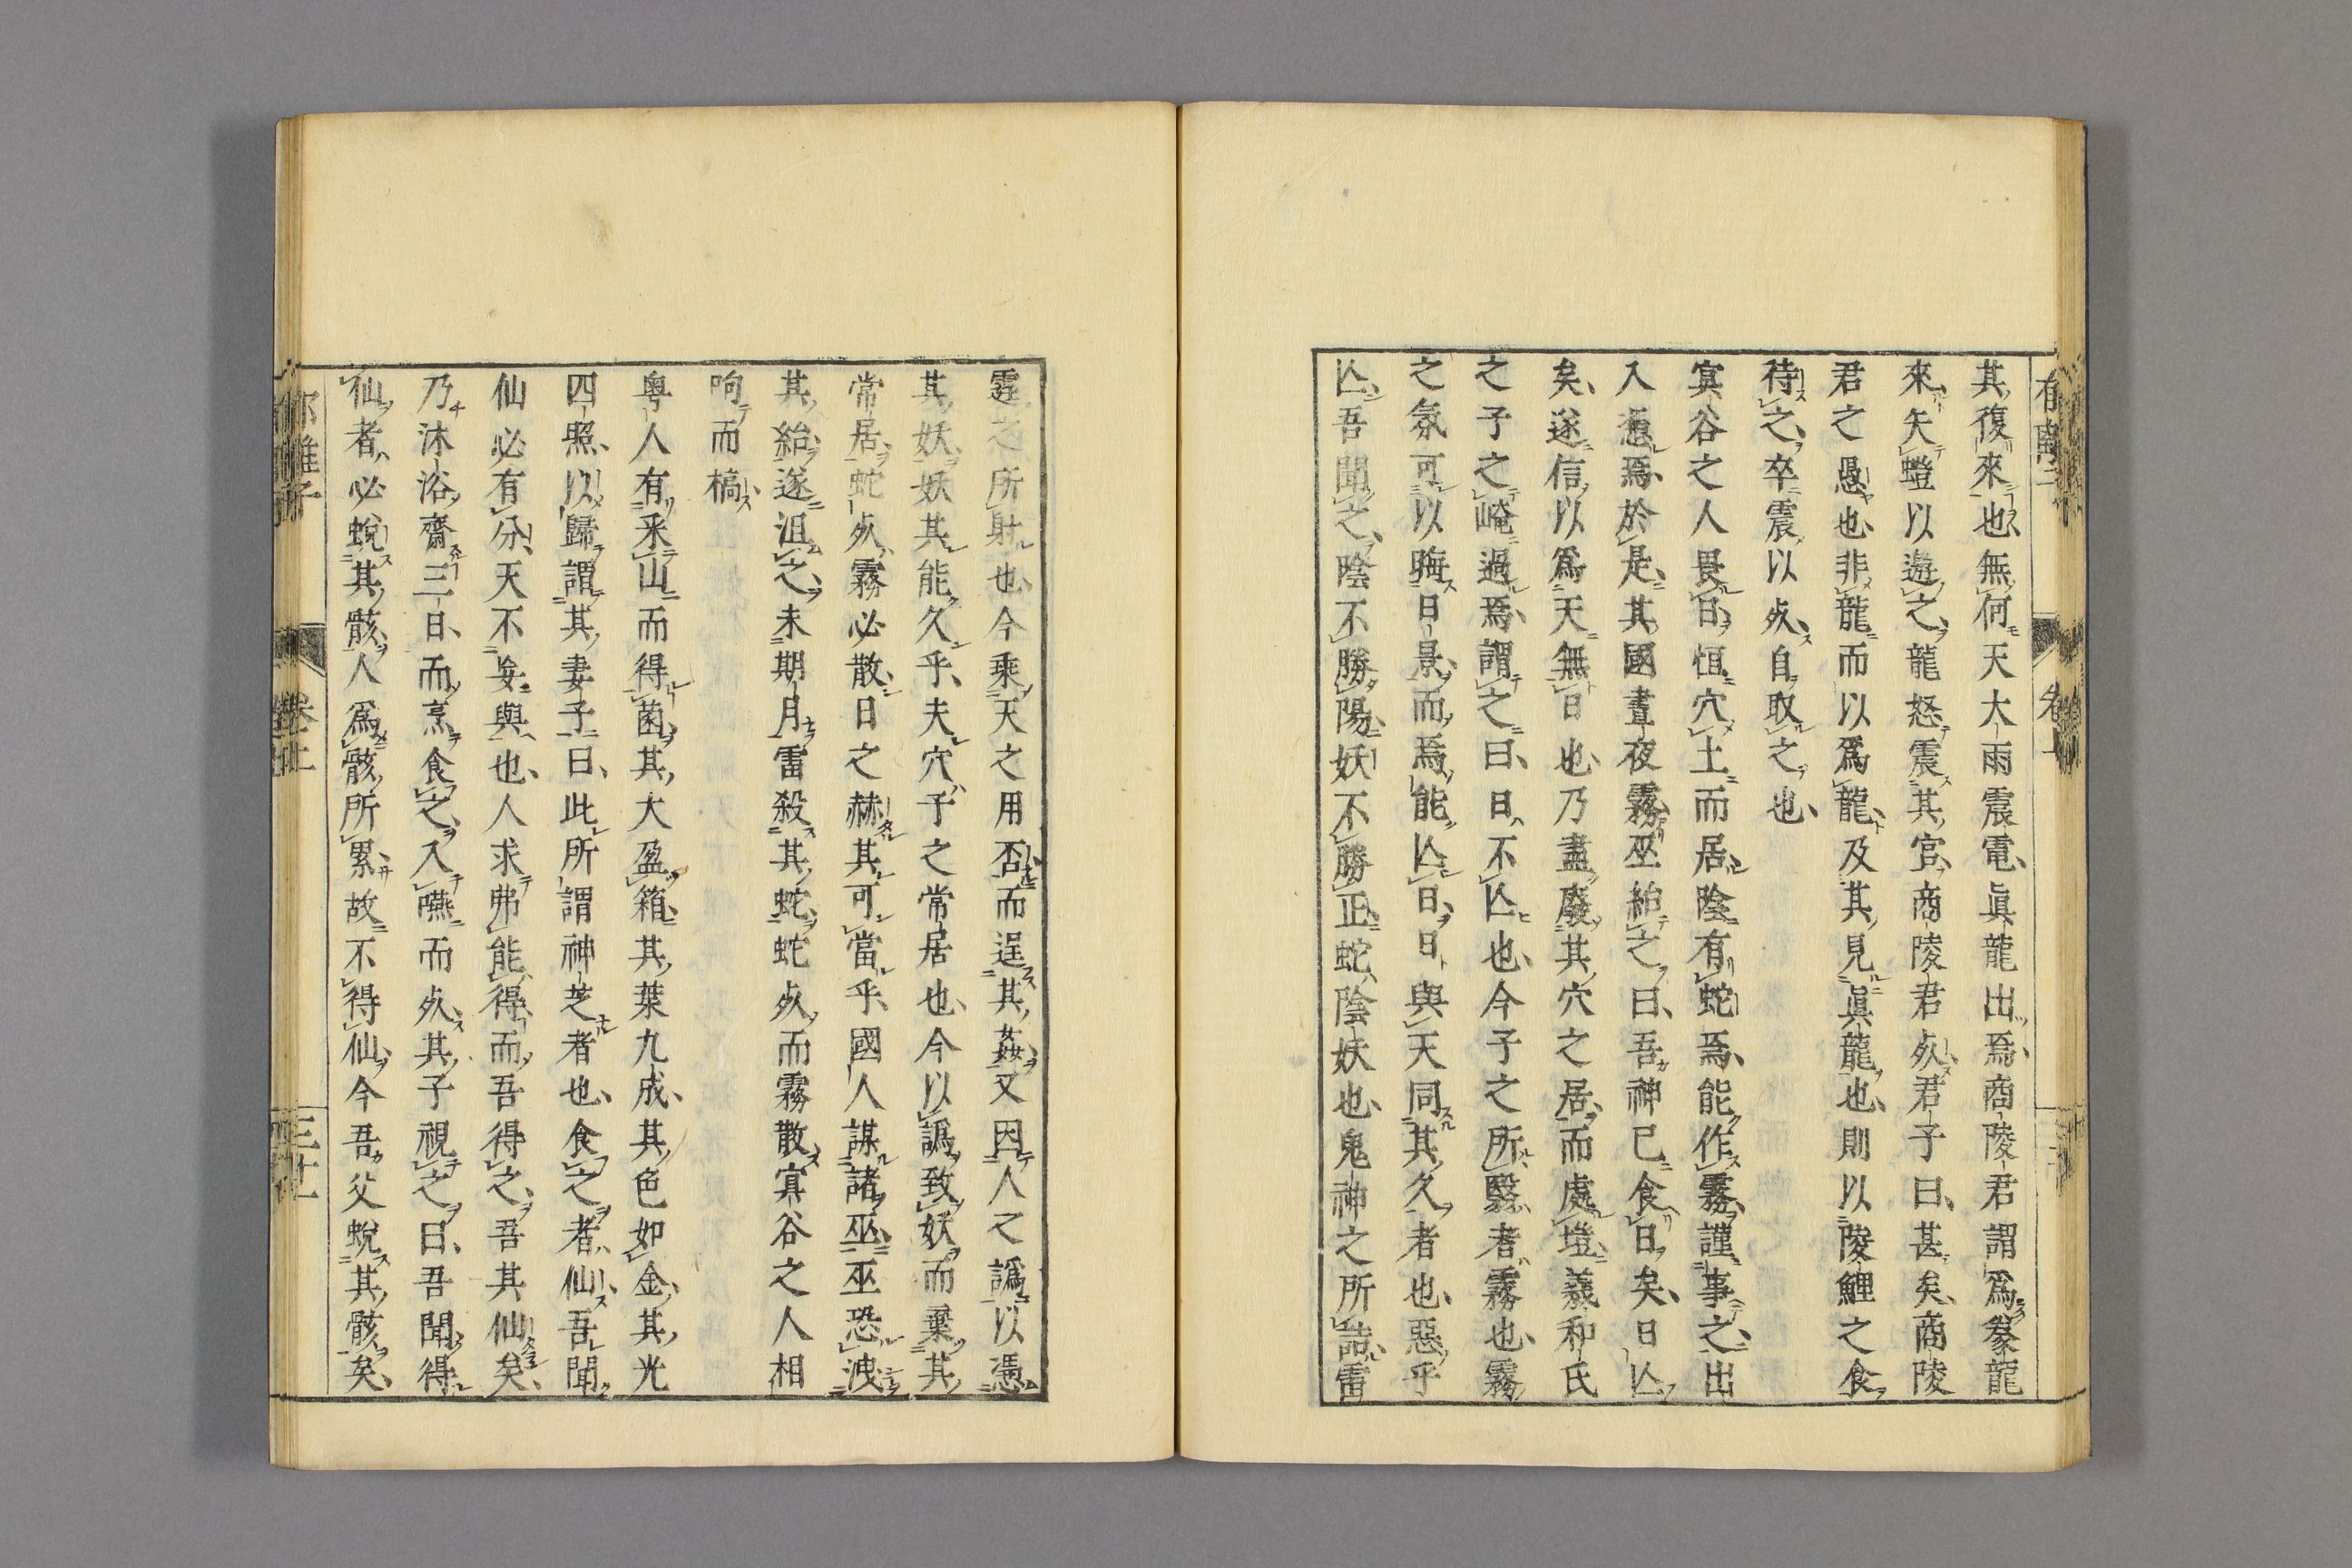 其復來也無何天大雨震電眞龍出焉商陵君謂爲豢龍
來矢蟶以邀之龍怒震其宮商陵君死君子曰甚矣商陵
君之愚也非龍而以爲龍及其見眞龍也則以陵鯉之食
待之卒震以死自取之也
冥谷之人畏日恒穴土而居陰有蛇焉能作霧謹事之出
入憑焉於是其國晝夜霧巫紿之曰吾神已食日矣日亡
矣遂信以爲天無日也乃盡廢其穴之居而處塏羲和氏
之子之崦過焉謂之曰日不亡也今子之所翳者霧也霧
之氛可以晦日景而焉能亡日日與天同其久者也惡乎
亡吾聞之陰不勝陽妖不勝正蛇陰妖也鬼神之所詰雷
霆之所射也今乘天之用否而逞其姦又因人之譌以憑
其妖妖其能久乎夫穴子之常居也今以譌致妖而棄其
常居蛇死霧必散日之赫其可當乎國人謀諸巫巫恐洩
其紿遂沮之未期月雷殺其蛇蛇死而霧散冥谷之人相
呴而槁
粤人有采山而得菌其大盈箱其葉九成其色如金其光
四照以歸謂其妻子曰此所謂神芝者也食之者仙吾聞
仙必有分天不妄與也人求弗能得而吾得之吾其仙矣
乃沐浴齋三日而烹食之入嚥而死其子視之曰吾聞得
仙者必蛻其骸人爲骸所累故不得仙今吾父蛻其骸矣